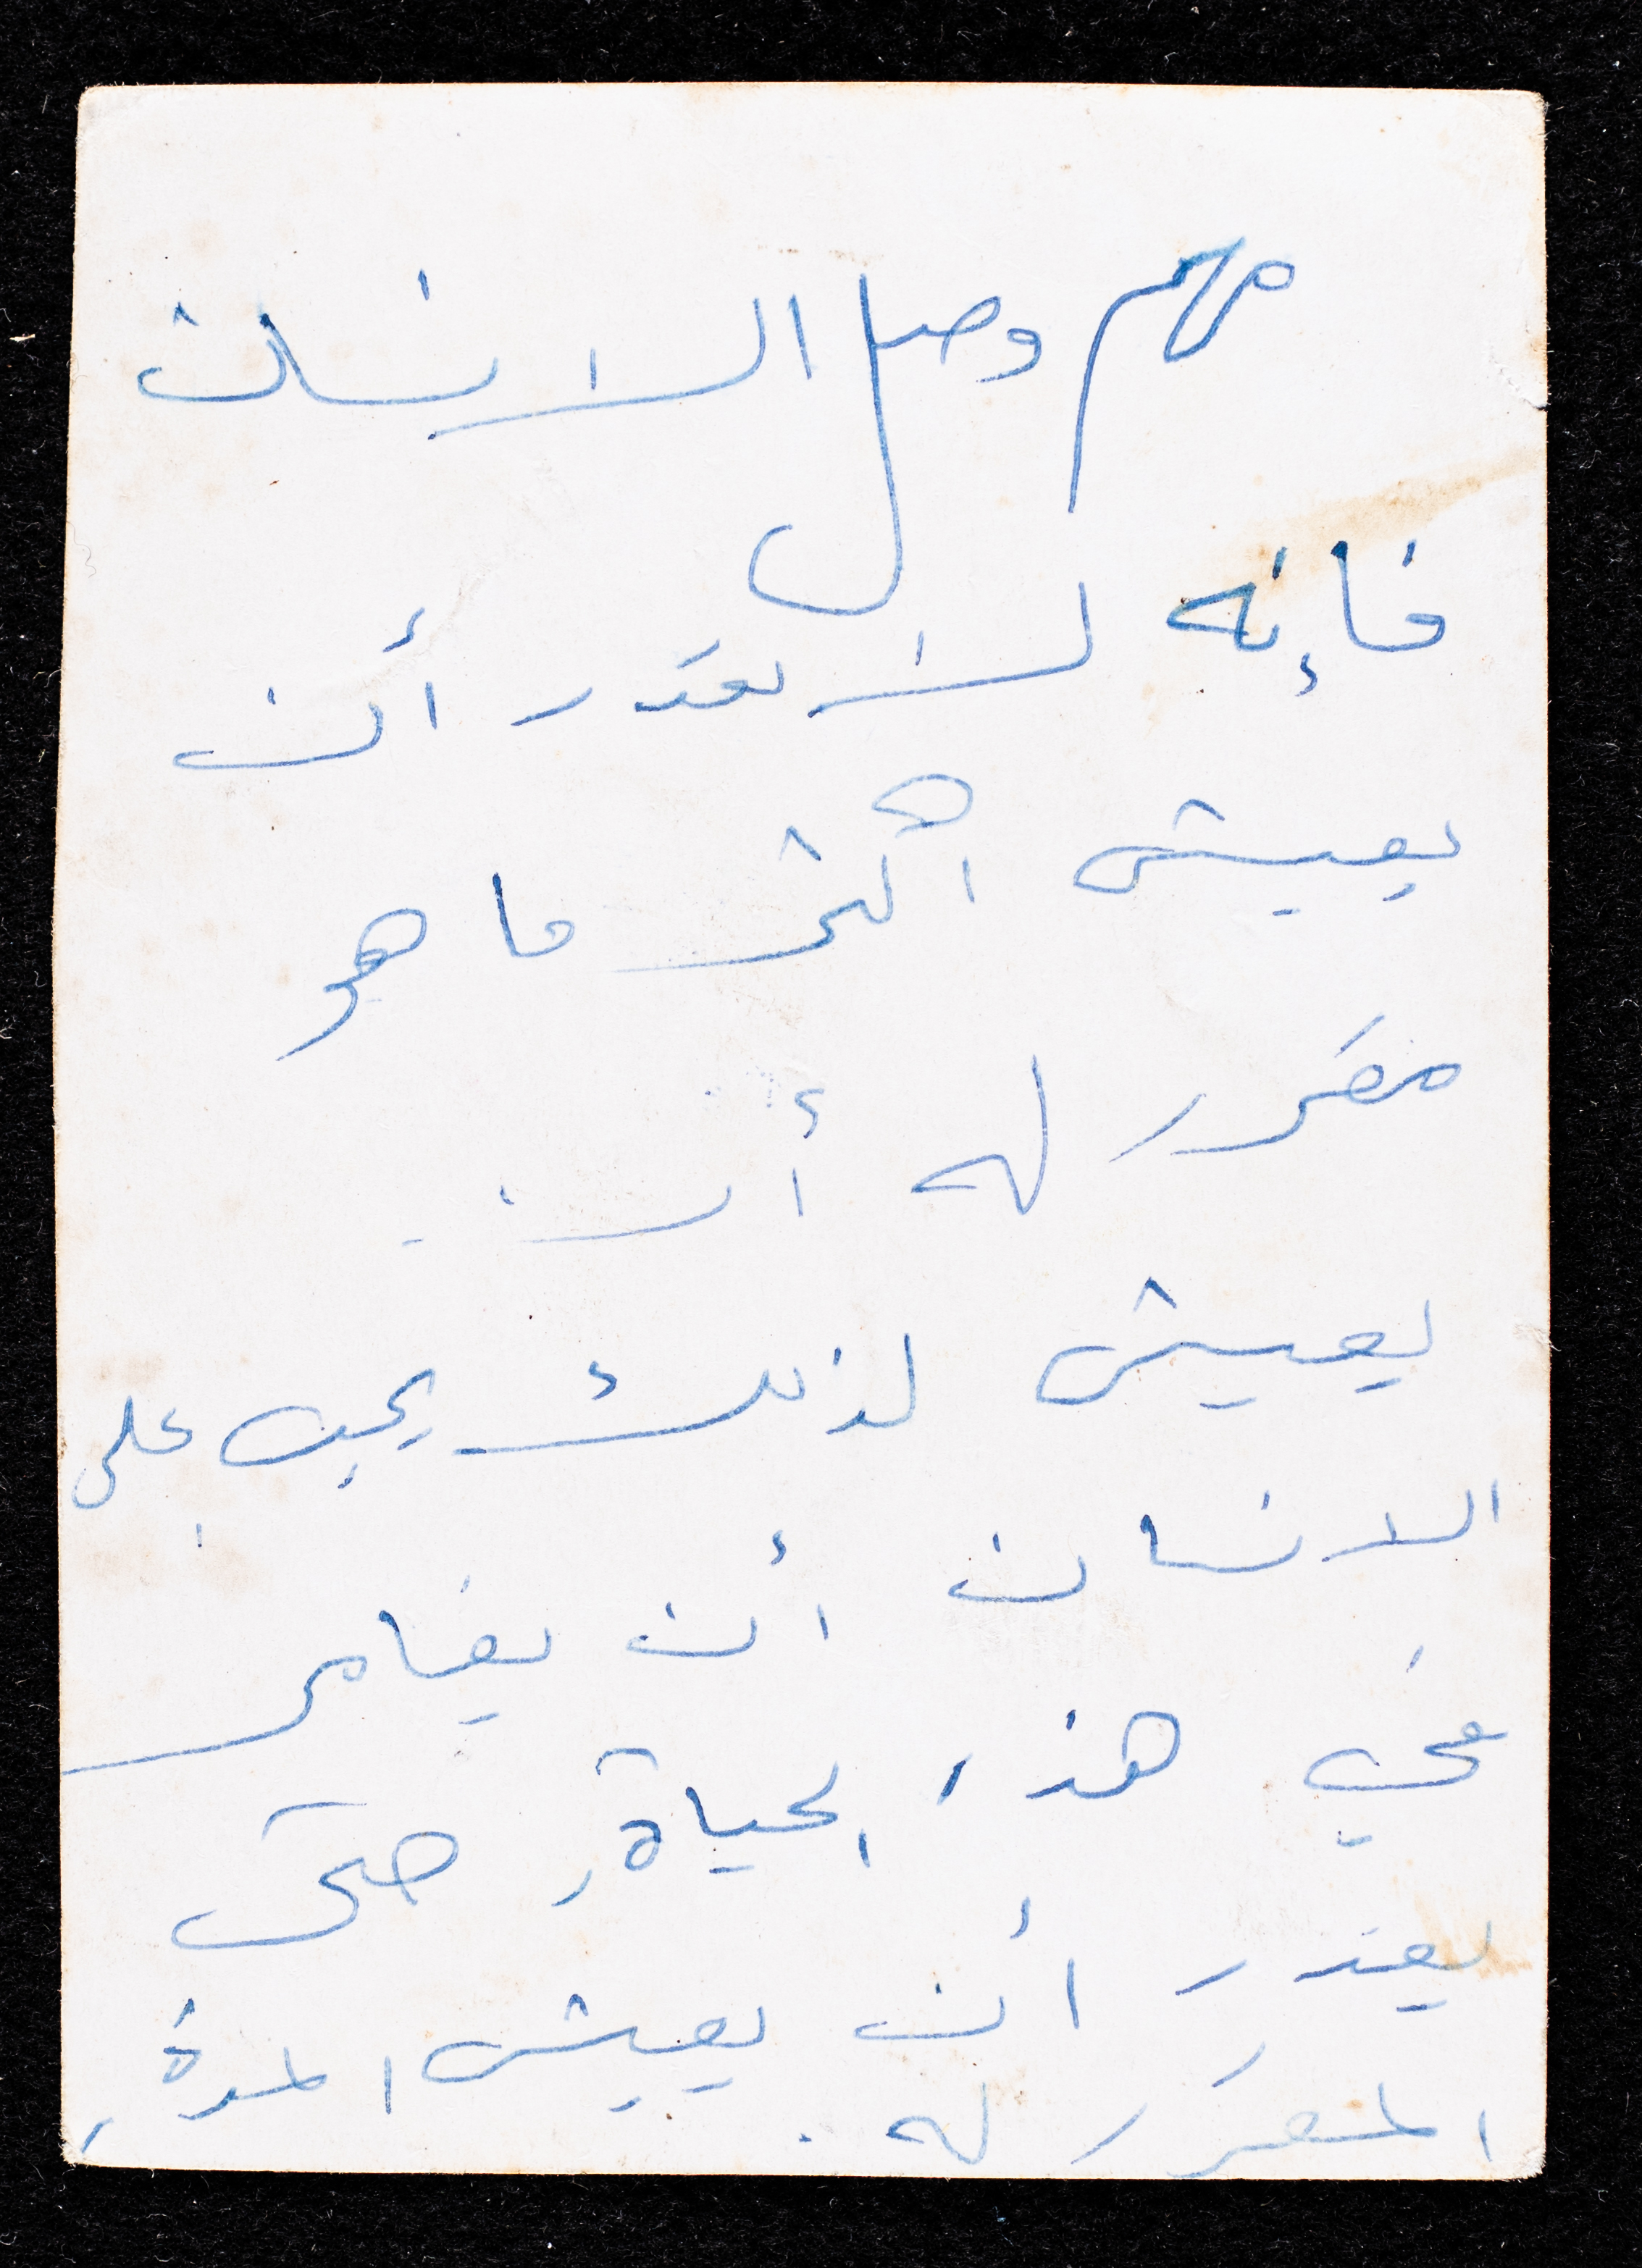 مهم وصل الانسان
فإنه لن يقدر أن
يعيش اكثر ما هو
مقرر له أن
يعيش لذلك يجب على
الانسان أن يغامر
في هذه الحياة, حتى
يقدر أن يعيش المدة,
المقرر له.